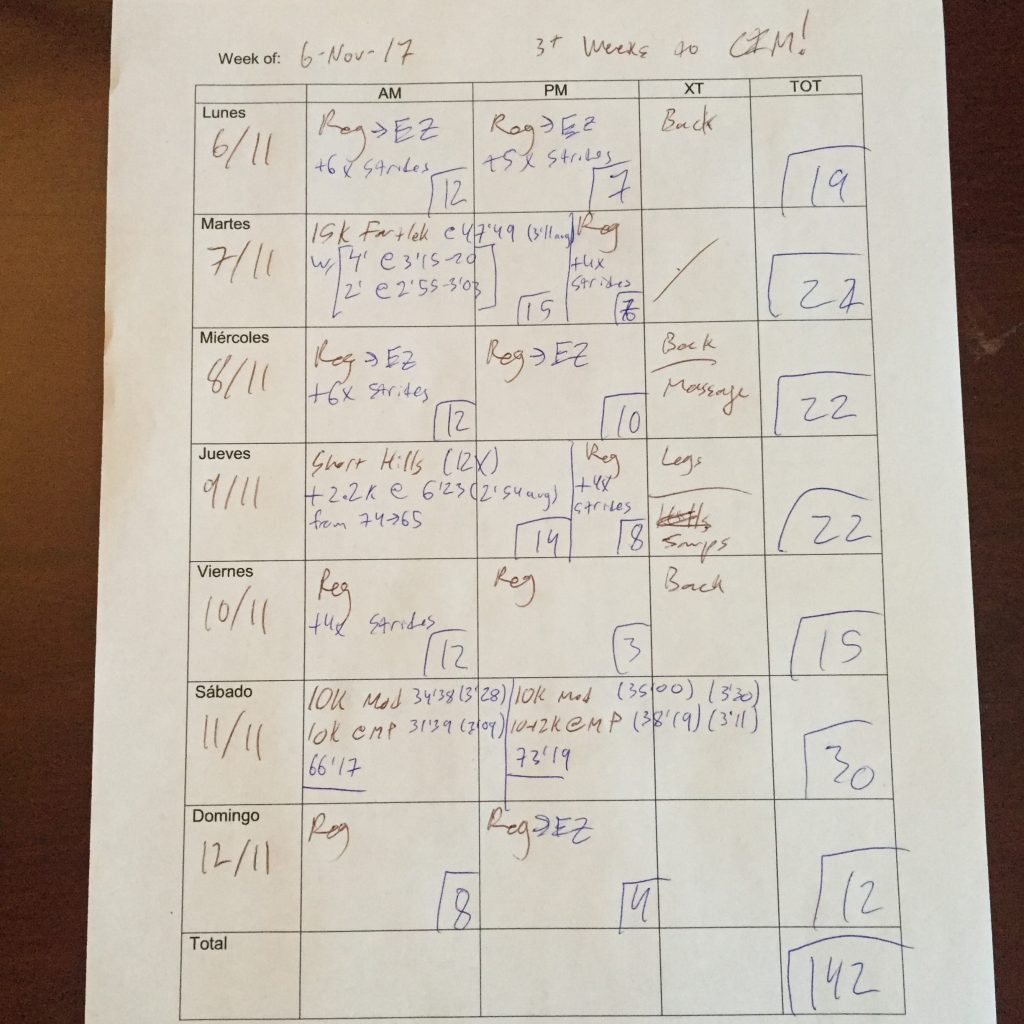 Week of: 6-Nov-17 3+ Weeks to CIM!
AM PM XT TOT
Lunes 6/11
Reg → EZ
+6x strides
12
Reg → EZ
+5x strides
7
Back
19
Martes 7/11
15K Fartlek @ 47'49 (3'11 avg)
w/ 4' @ 3'15-20
2' @ 2'55-3'03
15
Reg
+4x
strides
22
Miércoles 8/11
Reg → EZ
+6x strides
12
Reg → EZ
10
Back
Massage
22
Jueves 9/11
Short Hills (12X)
+2.2K @ 6'23 (2'54 avg)
from 74→65
14
Reg
+4x
strides
8
Legs
22
Viernes 10/11
Reg
+4x strides
12
Reg
3
Back
15
Sábado 11/11
10K Mod 34'38 (3'28)
10K @MP 31'39 (3'09)
66'17
10K Mod (35'00) (3'30)
10+2K @MP (38'19) (3'11)
73'19
30
Domingo 12/11
Reg
8
Reg → EZ
4
12
Total
142